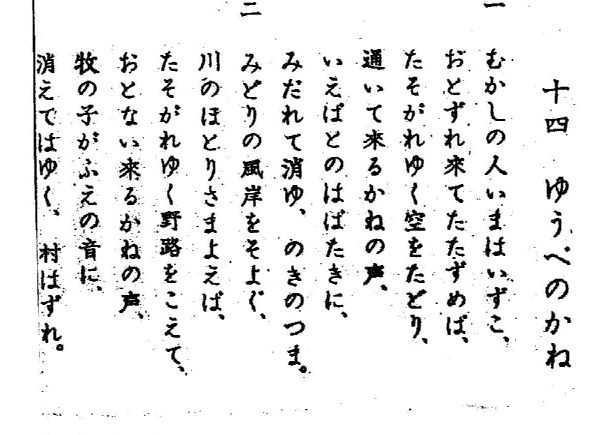 十四　ゆうべのかね
一
むかしの人いまはいずこ、
おとずれ来てたたずめば、
たそがれゆく空をたどり、
通いて来るかねの声、
いえばとのはばたきに、
みだれて消ゆ、のきのつま。
二
みどりの風岸をそよぐ、
川のほとりさまよえば、
たそがれゆく野路をこえて、
おとない来るかねの声、
牧の子がふえの音に、
消えてはゆく、村はずれ。